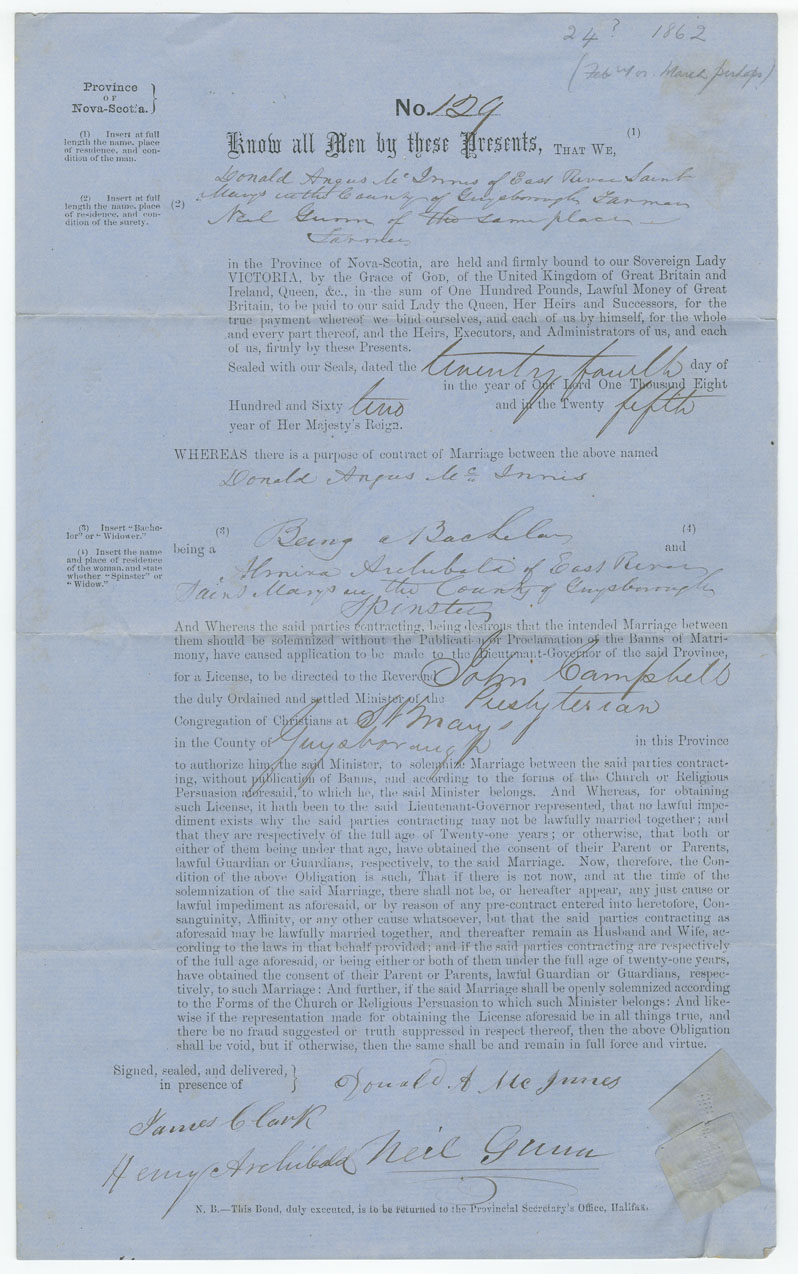 24? 1862
(Feb or March perhaps)
Province
OF
Nova-Scotia.
No. 129
Know all Men by these Presents, THAT WE, (1)
(1) Insert at full
length the name, place
of residence, and con-
dition of the man.
(2) Insert at full
length the name, place
of residence, and con-
dition of the surety.
(2)
Donald Angus Mc Innis of East River Saint
Marys in the County of Guysborough Farmer
Neil Gunn of the same place
Farmer
in the Province of Nova-Scotia, are held and firmly bound to our Sovereign Lady
VICTORIA, by the Grace of GOD, of the United Kingdom of Great Britain and
Ireland, Queen, &c., in the sum of One Hundred Pounds, Lawful Money of Great
Britain, to be paid to our said Lady the Queen, Her Heirs and Successors, for the
true payment whereof we bind ourselves, and each of us by himself, for the whole
and every part thereof, and the Heirs, Executors, and Administrators of us, and each
of us, firmly by these Presents.
Sealed with our Seals, dated the twenty fourth day of
in the year of Our Lord One Thousand Eight
Hundred and Sixty two and in the Twenty fifth
year of Her Majesty's Reign.
WHEREAS there is a purpose of contract of Marriage between the above named
Donald Angus Mc Innis
(3) Insert "Bache-
lor" or "Widower."
(4) Insert the name
and place of residence
of the woman, and state
whether "Spinster" or
"Widow."
(3) (4)
being a Being a Bachelor and
Archibald of East River
Saint Marys in the County of Guysborough
Spinster
And Whereas the said parties contracting, being desirous that the intended Marriage between
them should be solemnized without the Publication or Proclamation of the Banns of Matri-
mony, have caused application to be made to the Lieutenant-Governor of the said Province,
for a License, to be directed to the Reverend John Campbell
the duly Ordained and settled Minister of the Presbyterian
Congregation of Christians at St Marys
in the County of Guysborough in this Province
to authorize him, the said Minister, to solemnize Marriage between the said parties contract-
ing, without publication of Banns, and according to the forms of the Church or Religious
Persuasion aforesaid, to which he, the said Minister belongs. And Whereas, for obtaining
such License, it hath been to the said Lieutenant-Governor represented, that no lawful impe-
diment exists why the said parties contracting may not be lawfully married together; and
that they are respectively of the full age of Twenty-one years; or otherwise, that both or
either of them being under that age, have obtained the consent of their Parent or Parents,
lawful Guardian or Guardians, respectively, to the said Marriage. Now, therefore, the Con-
dition of the above Obligation is such, That if there is not now, and at the time of the
solemnization of the said Marriage, there shall not be, or hereafter appear, any just cause or
lawful impediment as aforesaid, or by reason of any pre-contract entered into heretofore, Con-
sanguinity, Affinity, or any other cause whatsoever, but that the said parties contracting as
aforesaid may be lawfully married together, and thereafter remain as Husband and Wife, ac-
cording to the laws in that behalf provided; and if the said parties contracting are respectively
of the full age aforesaid, or being either or both of them under the full age of twenty-one years,
have obtained the consent of their Parent or Parents, lawful Guardian or Guardians, respec-
tively, to such Marriage: And further, if the said Marriage shall be openly solemnized according
to the Forms of the Church or Religious Persuasion to which such Minister belongs: And like-
wise if the representation made for obtaining the License aforesaid be in all things true, and
there be no fraud suggested or truth suppressed in respect thereof, then the above Obligation
shall be void, but if otherwise, then the same shall be and remain in full force and virtue.
Signed, sealed, and delivered,
in presence of
Donald A Mc Innes
James Clark
Henry Archibald Neil Gunn
N. B.—This Bond, duly executed, is to be returned to the Provincial Secretary's Office, Halifax.